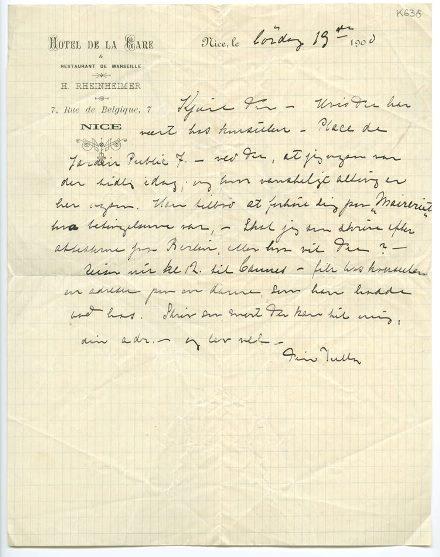 K638
HOTEL DE LA GARE
&
RESTAURANT DE MARSEILLE
H. RHEINHEIMER
7, Rue de Belgique, 7
NICE
Nice, le Lördag 13 de 1900
Kjäre Du – Hvis Du har
vært hos konsulen – Place de
Jardin Public 7. – ved Du, at jeg ogsaa var
der idag, og hvor vanskeligt alting er
her ogsaa. Han at dig paa "Maireriet"
hva betingelserne var, – Skal jeg saa skrive efter
fra Berlin, eller hva vil Du? –
Reiser nu kl 2. til Cannes – fik hos konsulen
en adresse paa en dame som han hadde
ved hos. Skriv saa snart Du kan til mig,
din adr. – og lev vel –
Din Tulla